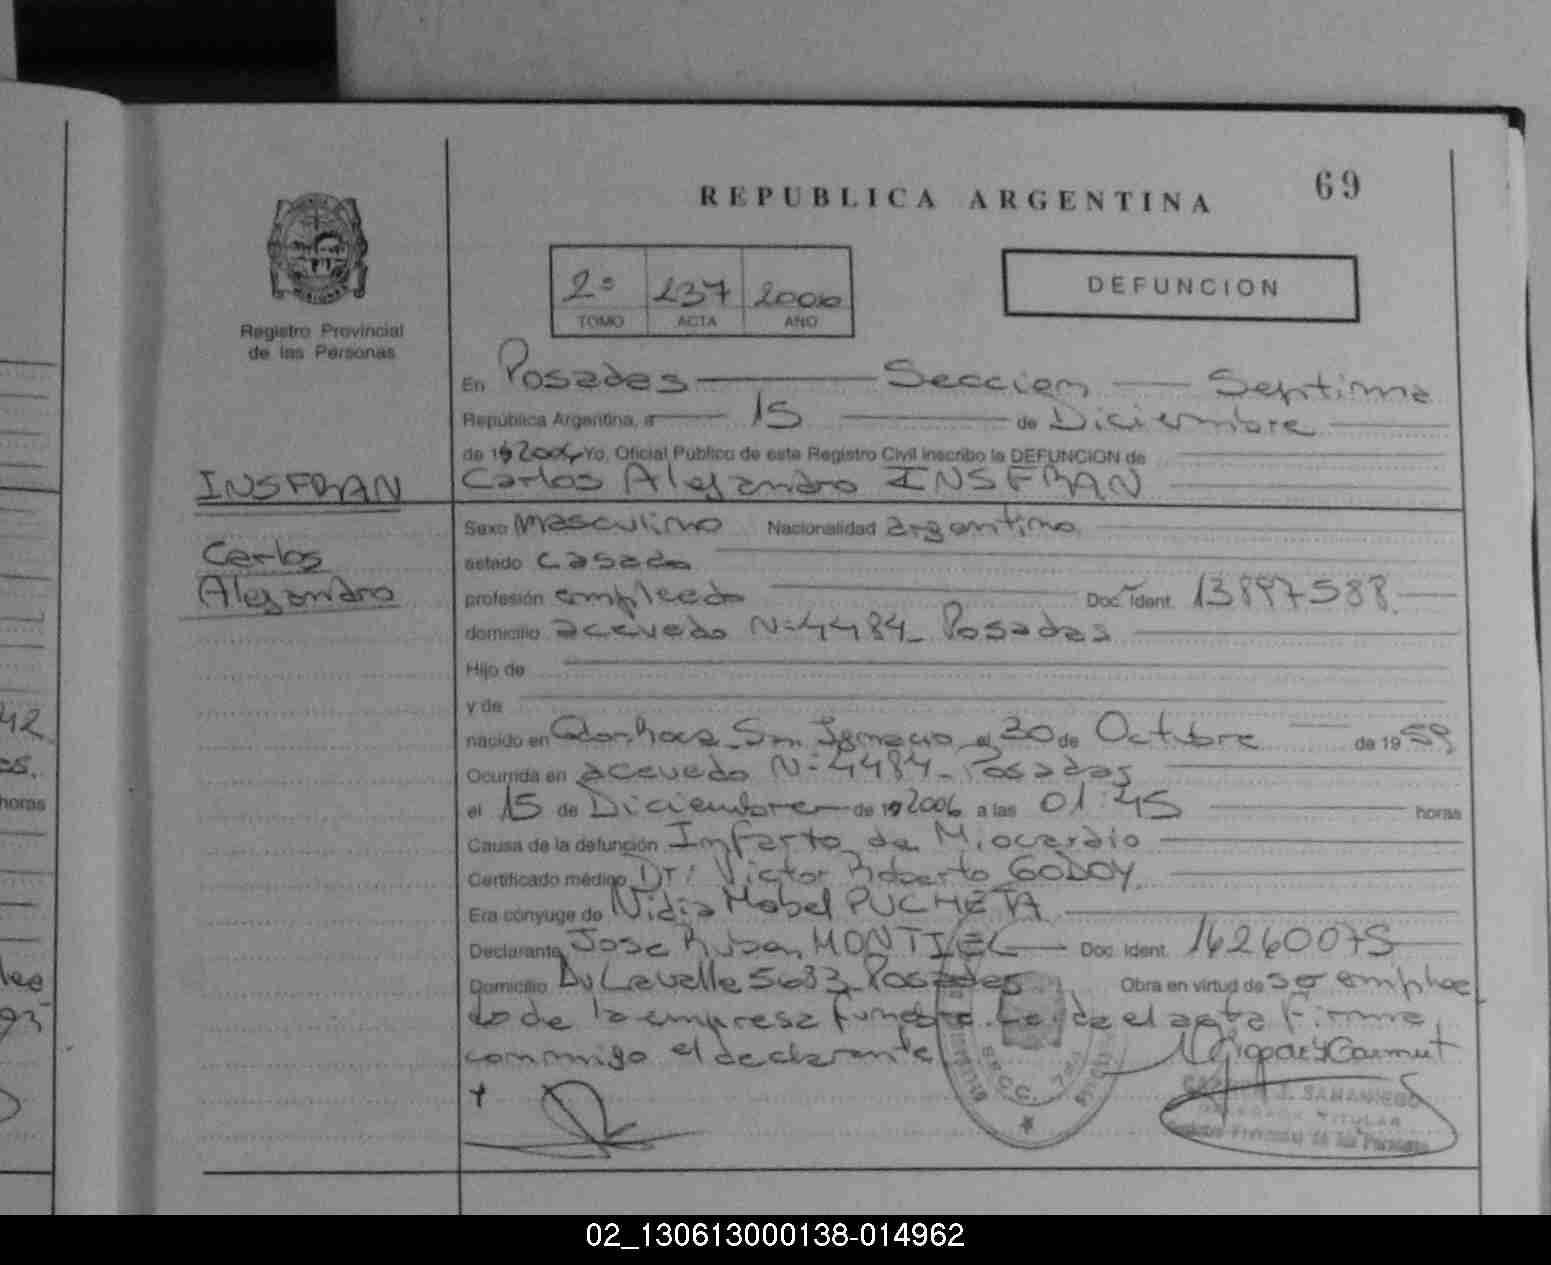 REPUBLICA ARGENTINA
69
2º 237 2006
TOMO ACTA AÑO
DEFUNCION
Registro Provincial
de las Personas
En Posadas Seccion Septima
República Argentina, a 15 de Diciembre
de 19 2006 Yo, Oficial Público de este Registro Civil inscribo la DEFUNCION de
INSFRAN
Carlos Alejandro INSFRAN
Carlos
Alejandro
Sexo Masculino Nacionalidad argentina
estado casado
profesión empleado Doc. Ident. 13897588
domicilio acevedo Nº 4484 Posadas
Hijo de
y de
nacido en San Ignacio el 30 de Octubre de 1959
Ocurrida en acevedo Nº 4484 Posadas
el 15 de Diciembre de 19 2006 a las 01:45 horas
Causa de la defunción Infarto de Miocardio
Certificado médico Dr: Victor Roberto GODOY
Era cónyuge de Nidia Mabel PUCHETA
Declarante Jose Ruben MONTIEL Doc. Ident. 16260075
Domicilio Av Lavalle 5683 Posadas Obra en virtud de so emplea
do de la empresa funebre. Leida el acta firma
conmigo el declarante
SECC. 7ma
J. SAMANIEGO
TITULAR
Provincial de las Personas
42
horas
93
02_130613000138-014962